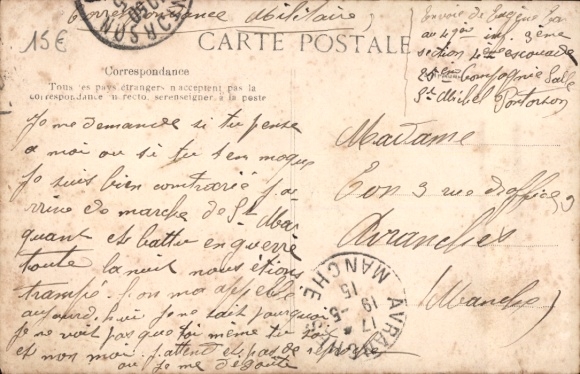 Correspondance Militaire
15€
CARTE POSTALE
Correspondance
Tous les pays étrangers n'acceptent pas la
correspondance au recto, se renseigner à la poste
Envoie de Eugène
au 47ème inf. 3ème
section 4ème escouade
25ème compagnie Salle
St Michel Pontorson
Je me demande si tu pense
a moi ou si tu t'en moque
Je suis bien contrarié j'ar
rive de marche de St
quant ets battu en guerre
toute la nuit nous étions
trampé. on ma appelé
aujourd'hui je ne sait pourquoi
Je ne voit pas que toi même tu
et non moi. j'attent et pas de
ou je me dégoute
Madame
3 rue
Avranches
(Manche)
PONTORSON
AVRANCHES
17 -5
19 15
MANCHE